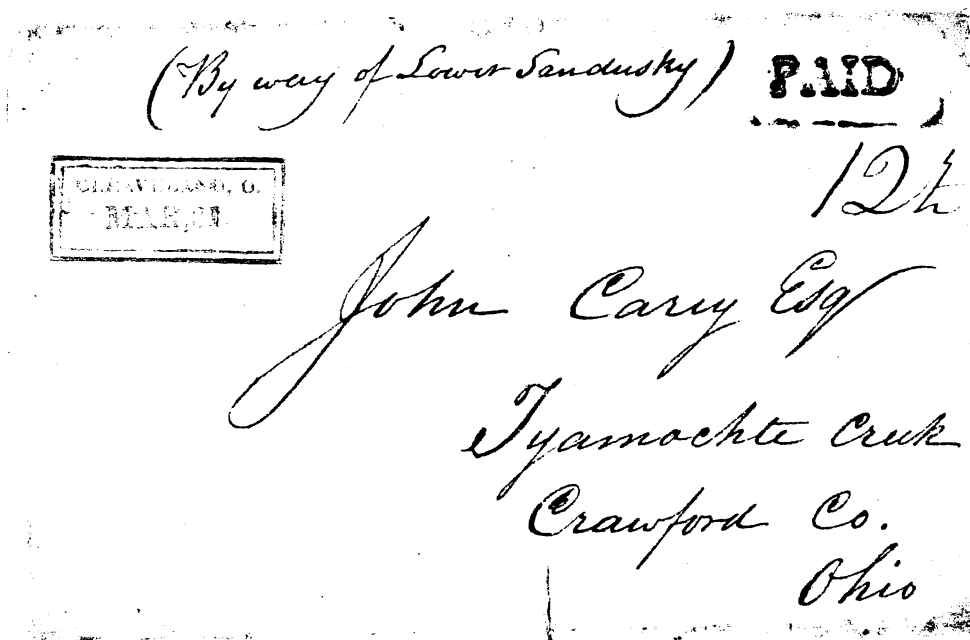 (By way of Lower Sandusky)
PAID
12½
CLEAVELAND, O.
MAR,
John Carey Esq
Tyamochte Creek
Crawford Co.
Ohio